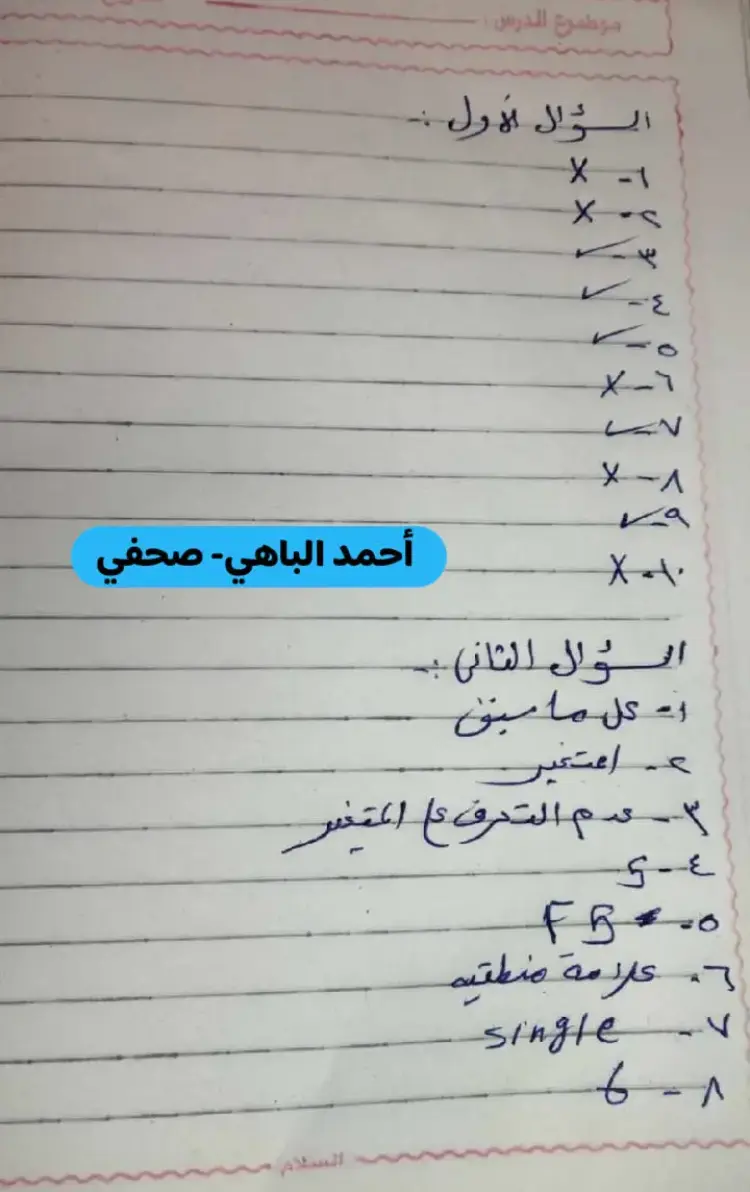 موضوع الدرس :
السؤال الأول :-
١- X
٢- X
٣- ✓
٤- ✓
٥- ✓
٦- X
٧- ✓
٨- X
٩- ✓
١٠- X
أحمد الباهي- صحفي
السؤال الثاني :-
١- كل ما سبق
٢- المتغير
٣- عدم التعرف على المتغير
٤- 5
٥- F5
٦- علامة منطقيه
٧- single
٨- 6